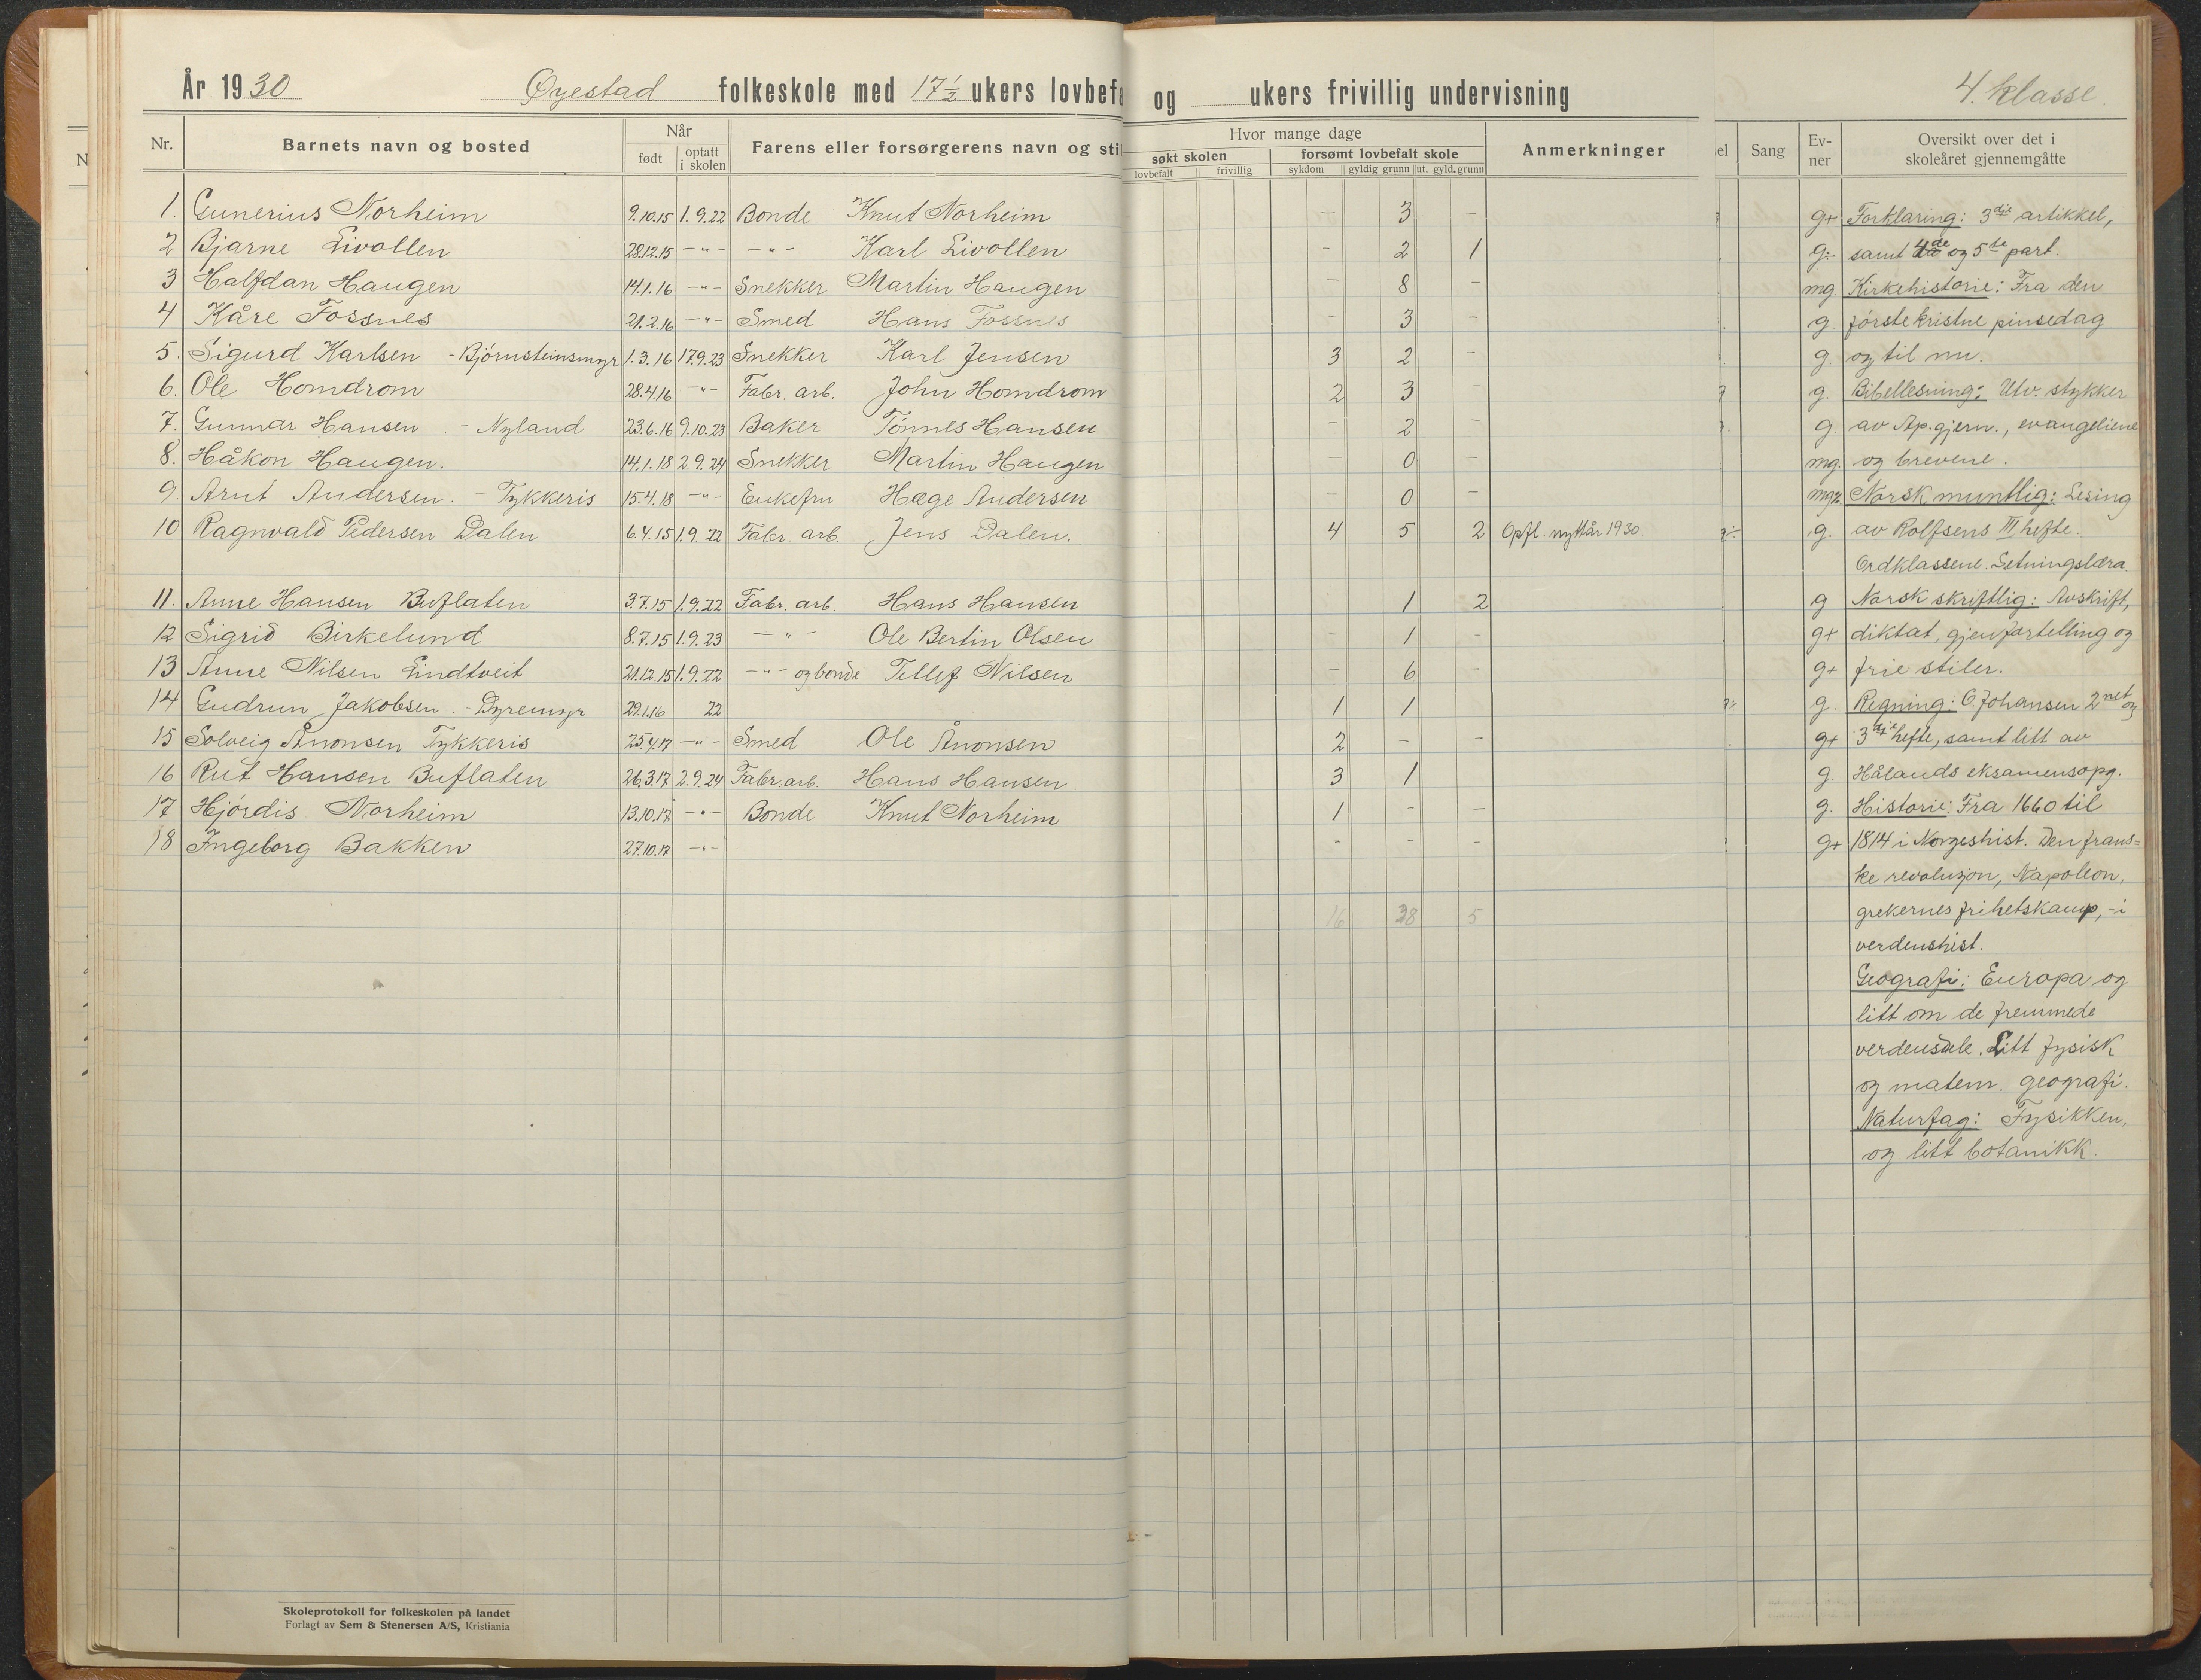 År 1930 Øyestad folkeskole med 17 1/2 ukers lovbefa og ukers frivillig undervisning 4. klasse.
Nr. Barnets navn og bosted Når født optatt i skolen Farens eller forsørgerens navn og sti Hvor mange dage søkt skolen lovbefalt frivillig forsømt lovbefalt skole sykdom gyldig grunn ut. gyld. grunn Anmerkninger el Sang Evner Oversikt over det i skoleåret gjennemgåtte
1. Gunerius Norheim 9.10.15 1.9.22 Bonde Knut Norheim – 3 – g+ Forklaring: 3dje artikkel,
2 Bjarne Livollen 28.12.15 –"– –"– Karl Livollen – 2 1 g÷ samt 4de og 5te part.
3 Halfdan Haugen 14.1.16 –"– Snekker Martin Haugen – 8 – mg. Kirkehistorie: Fra den
4 Kåre Fossnes 21.2.16 –"– Smed Hans Fossnes – 3 – g. første kristne pinsedag
5. Sigurd Karlsen - Bjørnsteinsmyr 1.3.16 17.9.23 Snekker Karl Jensen 3 2 – g. og til nu.
6. Ole Homdrom 28.4.16 –"– Fabr. arb. John Homdrom 2 3 – g. Bibellesning: Utv. stykker
7. Gunnar Hansen. - Nyland 23.6.16 9.10.23 Baker Tønnes Hansen – 2 – g. av Ap.gjern., evangeliene
8. Håkon Haugen. 14.1.18 2.9.24 Snekker Martin Haugen – 0 – mg. og brevene.
9. Arnt Andersen. - Tykkeris 15.4.18 –"– Enkefru Hæge Andersen – 0 – Norsk muntlig: Lesing
10 Ragnvald Pedersen Dalen 6.4.15 1.9.22 Fabr. arb. Jens Dalen. 4 5 2 Opfl. nyttår 1930 g. av Rolfsens III hefte.
Ordklassene. Setningslæra.
11. Anne Hansen Buflaten 3.7.15 1.9.22 Fabr. arb. Hans Hansen 1 2 g Norsk skriftlig: Avskrift,
12 Sigrid Birkelund 8.7.15 1.9.23 –"– Ole Bertin Olsen – 1 – g+ diktat, gjenfortelling og
13 Anne Nilsen Lindtveit 21.12.15 1.9.22 –"– og bonde Tellef Nilsen – 6 – g+ frie stiler.
14 Gudrun Jakobsen. - Dyremyr 29.1.16 22 1 1 g. Regning: O. Johansen 2net og
15 Solveig Ånonsen Tykkeris 25.4.17 –"– Smed Ole Ånonsen 2 – – g+ 3dje hefte, samt litt av
16 Rut Hansen Buflaten 26.3.17 2.9.24 Fabr. arb. Hans Hansen. 3 1 g. Hålands eksamensopg.
17 Hjørdis Norheim 13.10.17 –"– Bonde Knut Norheim 1 – – g. Historie: Fra 1660 til
18 Ingeborg Bakken 27.10.17 –"– – – – g+ 1814 i Norgeshist. Den frans=
ke revolusjon, Napoleon,
16 38 5 grekernes frihetskamp, - i
verdenshist.
Geografi: Europa og
litt om de fremmede
verdensdele. Litt fysisk
og matem. geografi.
Naturfag: Fysikken,
og litt botanikk.
Skoleprotokoll for folkeskolen på landet
Forlagt av Sem & Stenersen A/S, Kristiania